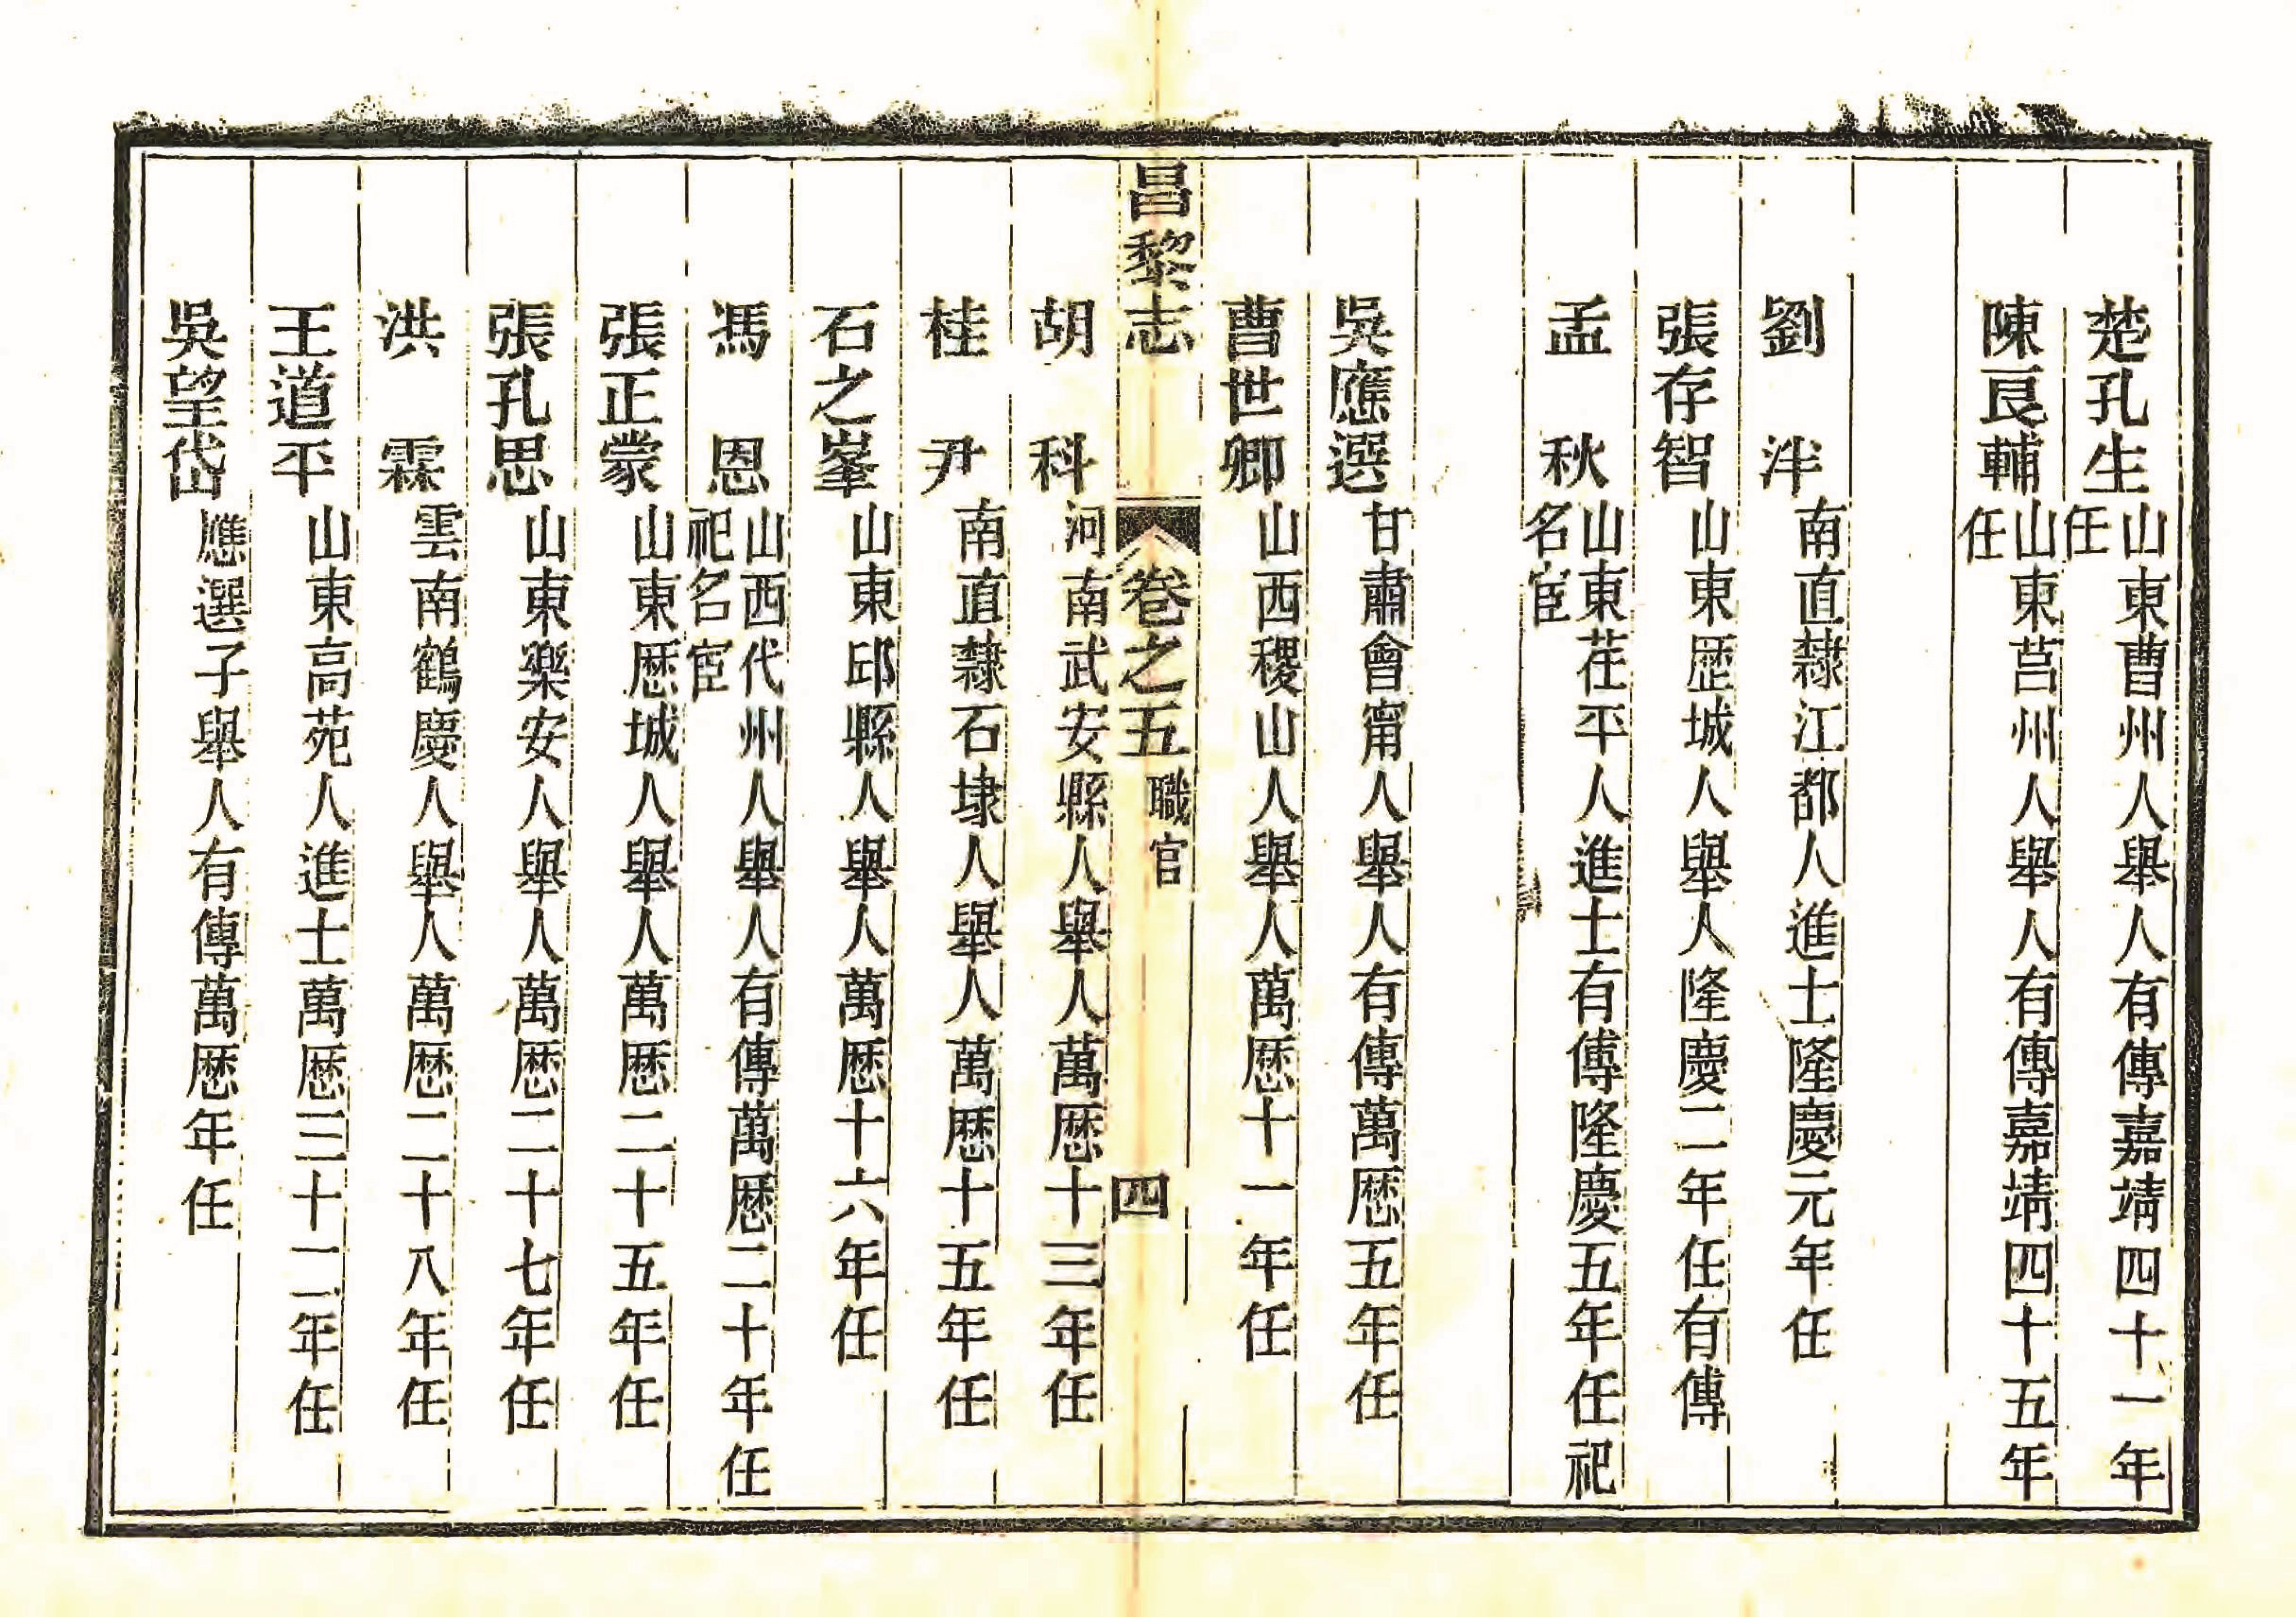 楚孔生山東曹州人舉人有傳嘉靖四十一年任
陳良輔山東莒州人舉人有傳嘉靖四十五年任
劉泮南直隸江都人進士隆慶元年任
張存智山東歴城人舉人隆慶二年任有傳
孟秋山東茌平人進士有傳隆慶五年任祀名宦
吳應選甘肅會甯人舉人有傳萬厯五年任
曹世卿山西稷山人舉人萬厯十一年任
昌黎志 卷之五 職官 四
胡科河南武安縣人舉人萬厯十三年任
桂尹南直隸石埭人舉人萬厯十五年任
石之峯山東邱縣人舉人萬厯十六年任
馮恩山西代州人舉人有傳萬厯二十年任祀名宦
張正蒙山東厯城人舉人萬厯二十五年任
張孔思山東樂安人舉人萬厯二十七年任
洪霖雲南鶴慶人舉人萬厯二十八年任
王道平山東高苑人進士萬厯三十二年任
吳望岱應選子舉人有傳萬厯年任